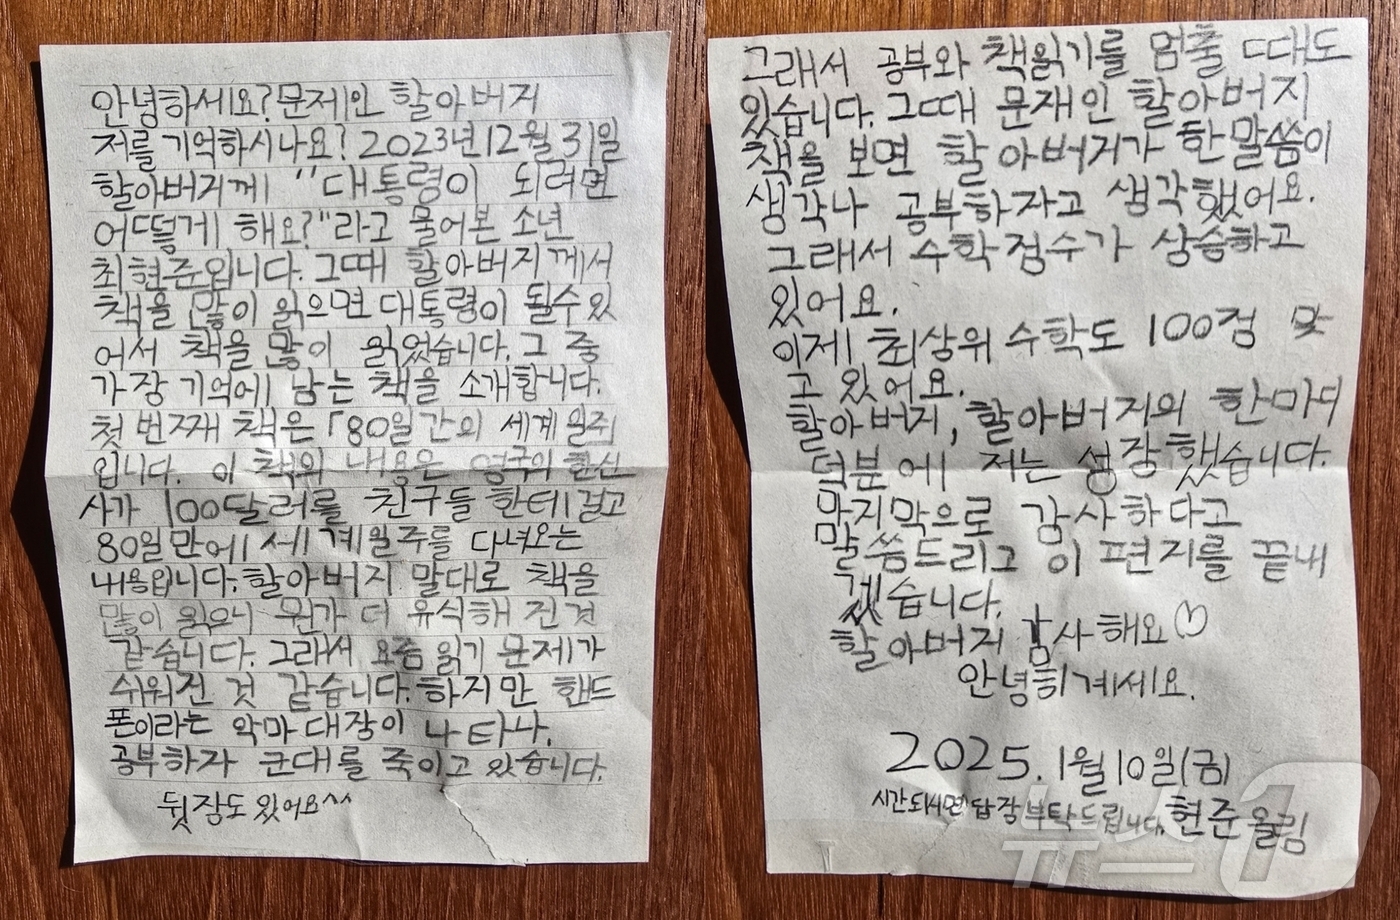 안녕하세요? 문제인 할아버지
저를 기억하시나요? 2023년 12월 31일
할아버지께 "대통령이 되려면
어떻게 해요?"라고 물어본 소년
최현준입니다. 그때 할아버지께서
책을 많이 읽으면 대통령이 될수 있
어서 책을 많이 읽었습니다. 그 중
가장 기억에 남는 책을 소개합니다.
첫 번째 책은 「80일간의 세계 일주
입니다. 이 책의 내용은 영국의 한신
사가 100달러를 친구들 한테 걸고
80일만에 세계일주를 다녀오는
내용입니다. 할아버지 말대로 책을
많이 읽으니 뭔가 더 유식해 진 것
같습니다. 그래서 요즘 읽기 문제가
쉬워진 것 같습니다. 하지만 핸드
폰이라는 악마 대장이 나타나,
공부하자 군대를 죽이고 있습니다.
뒷장도 있어요^^
그래서 공부와 책읽기를 멈출 때도
있습니다. 그때 문재인 할아버지
책을 보면 할아버지가 한 말씀이
생각나 공부하자고 생각했어요.
그래서 수학점수가 상승하고
있어요.
이제 최상위 수학도 100점 맞
고 있어요.
할아버지, 할아버지의 한마디
덕분에 저는 성장했습니다.
맘지막으로 감사하다고
말씀드리고 이 편지를 끝내
겠습니다.
할아버지 감사해요♡
안녕히계세요.
2025. 1월 10일(금)
시간되시면 답장 부탁드립니다. 현준 올림
뉴스1